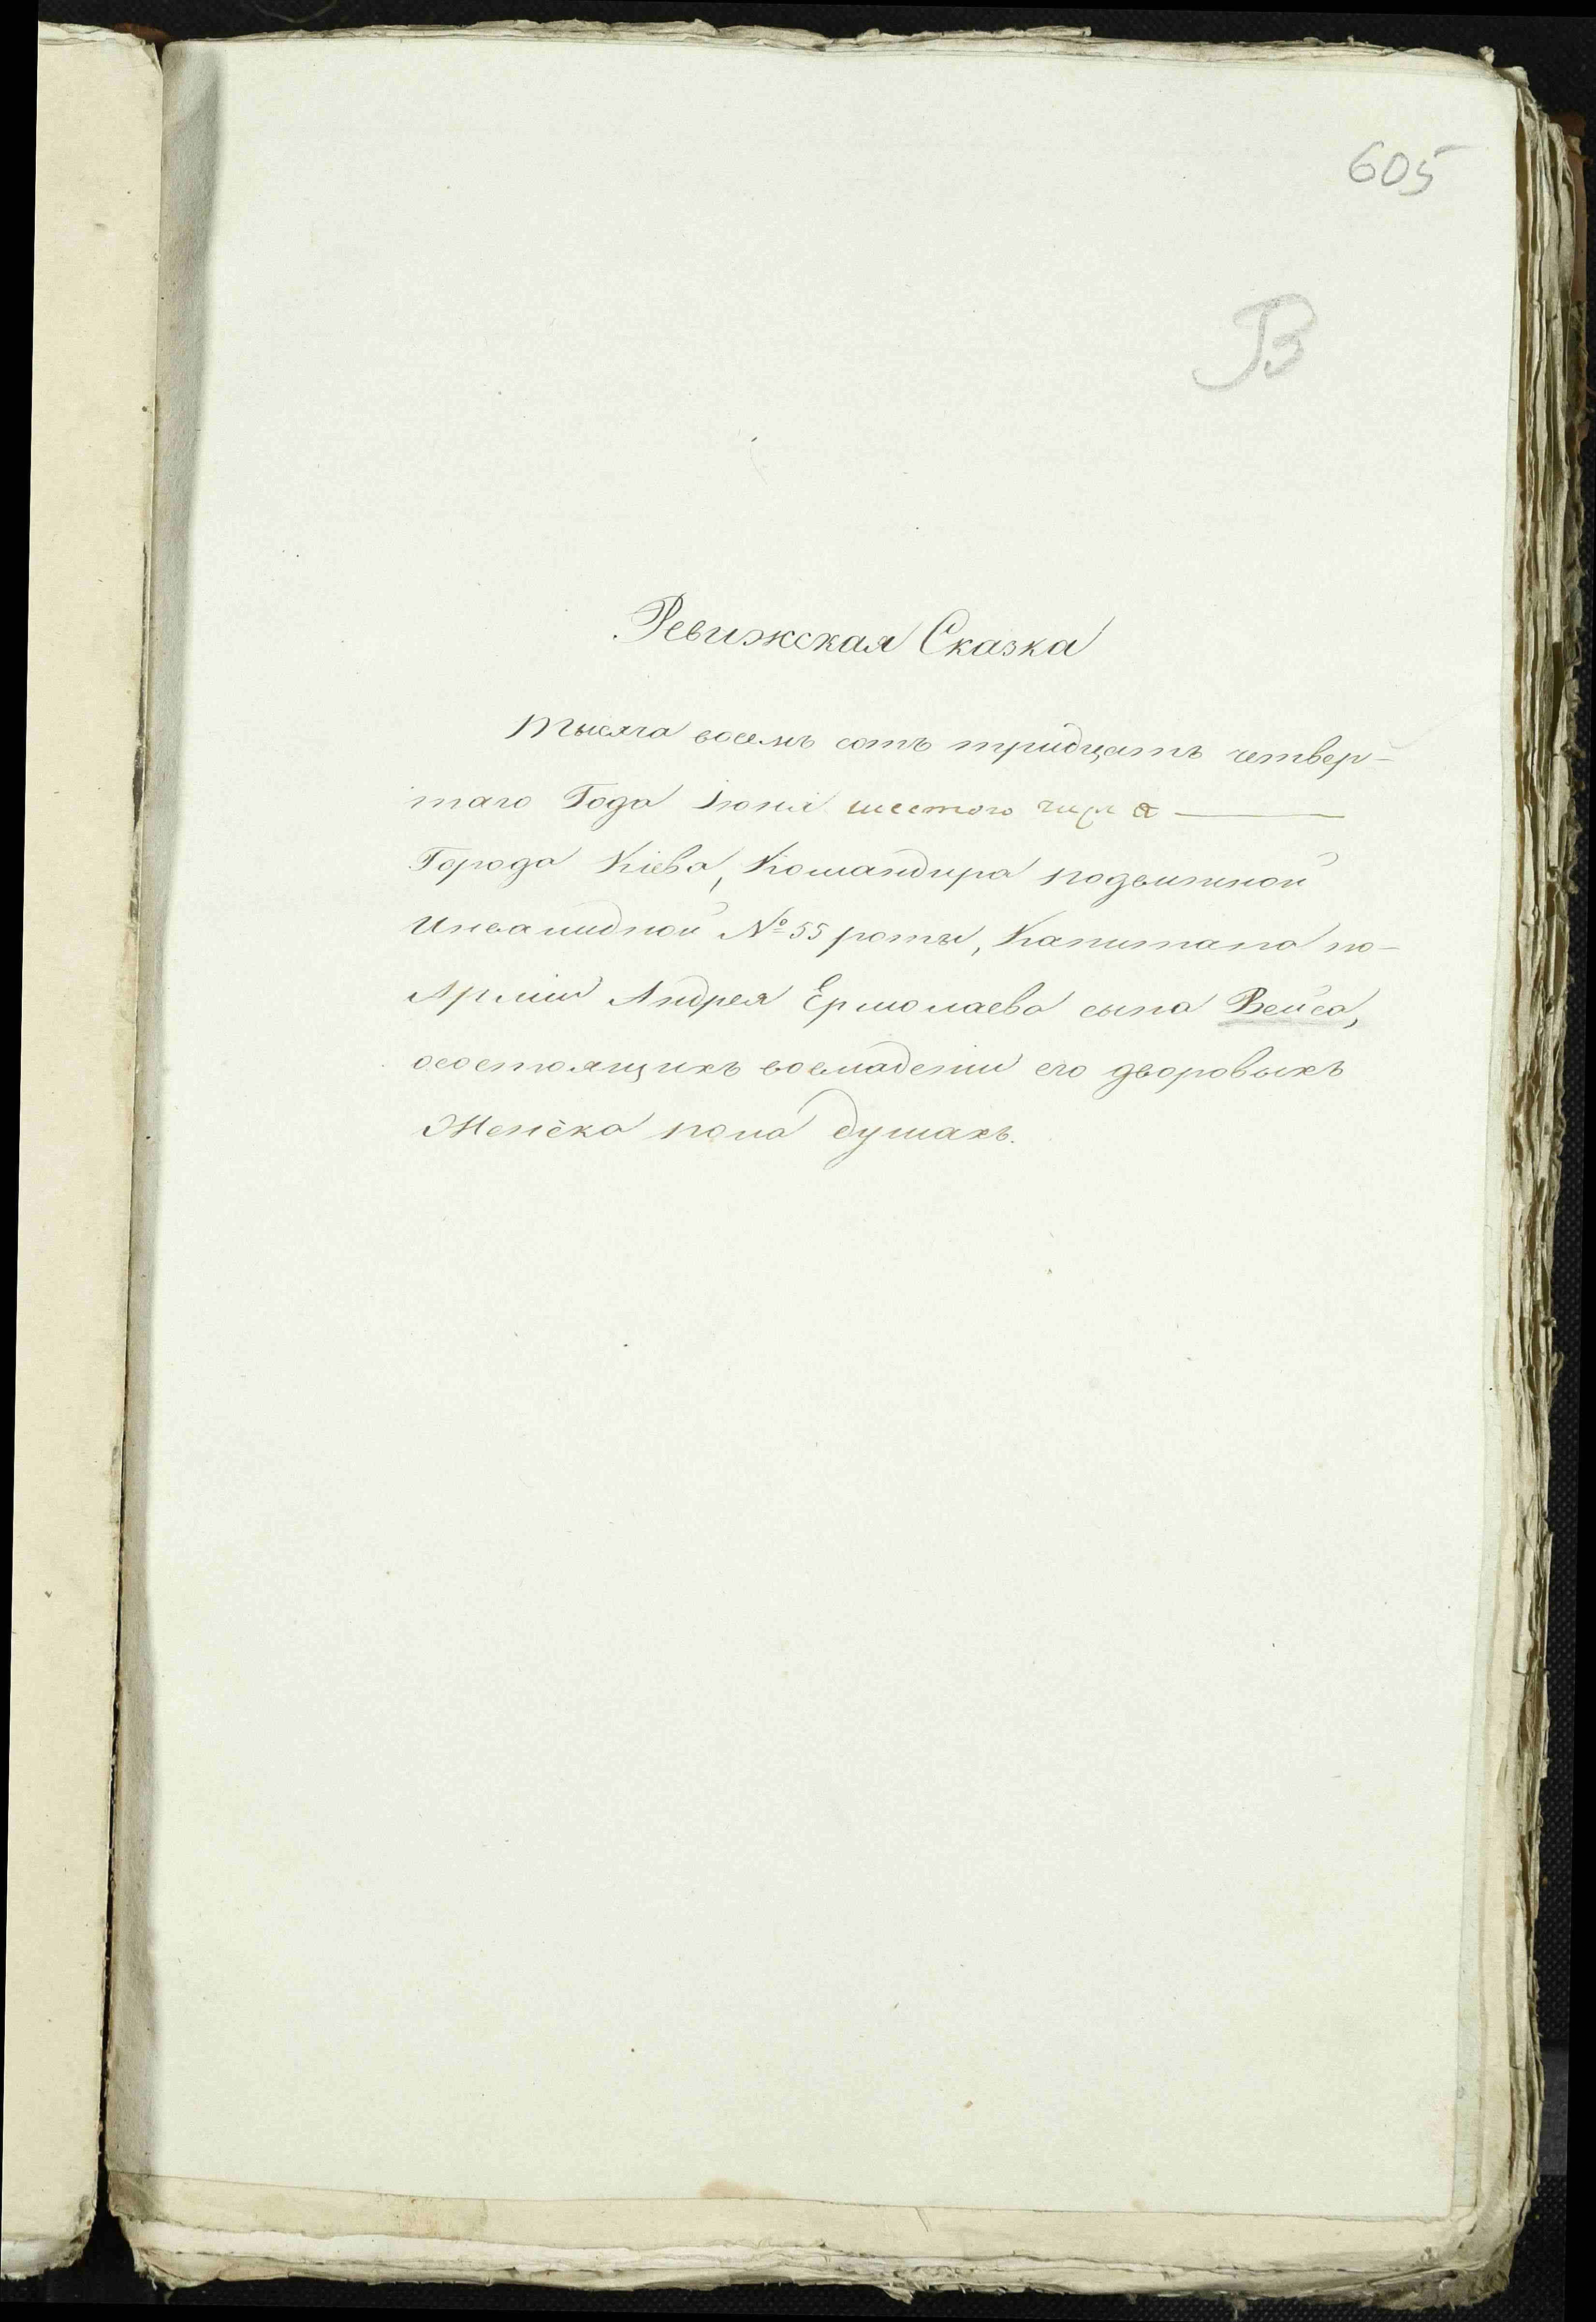 605
В
Ревижская Сказка
Тысяча восемь сотъ тридцать четвер-
таго Года Іюня шестого числа
Города Кіева, Командира подвижной
Инвалидной № 55 роты, Капитана по
Арміи Андрея Ермолаева сына Вейса,
осостоящихъ вовладеніи его дворовыхъ
Женска пола душахъ.